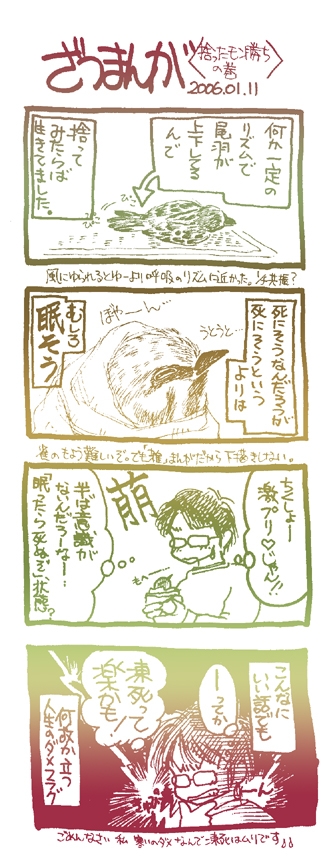 ざつまんが
〈捨ったモン勝ち
の巻〉
2006.01.11
何か一定の
リズムで
尾羽が
上下してる
んで
捨って
みたらば
生きてました。
ぴこ
ぴこ
風にゆられるとゆーより呼吸のリズムに近かった。
死にそうなんだろうが
死にそうという
よりは
むしろ
眠そう
ぽやーん…
うとうと…
雀のもよう難しいぞ。でも「雑」まんがだから下描きしない。
ちくしょー
激プリ♡じゃん!!
萌
もへー
半ば意識が
ないんだろーなー…
「眠ったら死ぬぞ」状態?
こんなに
いい話でも
ーってか
凍死って
楽かも!
何故か立つ
人生のダメフラグ
ごめんなさい 私 寒いのダメなんで凍死はムリです